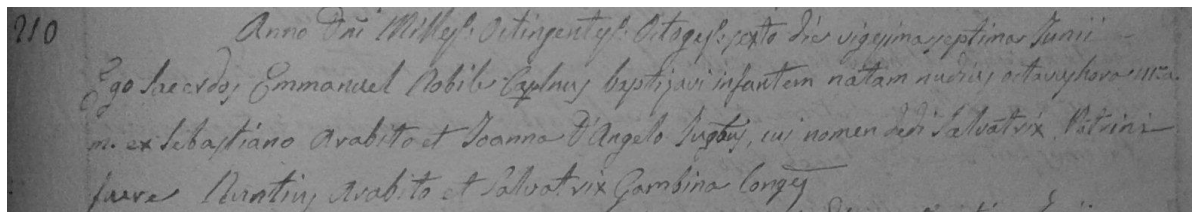 210 Anno Dni Milles: Octingentes: Octoges: sexto die vigesima septima Junii
Ego Sacerdos Emmanuel Nobile Caplnus baptizavi infantem natam nudius octavus hora
m. ex Sebastiano Arabito et Joanna D'Angelo Jugbus, cui nomen dedi Salvatrix Patrini
fuere Nuntius Arabito et Salvatrix Gambina Conges